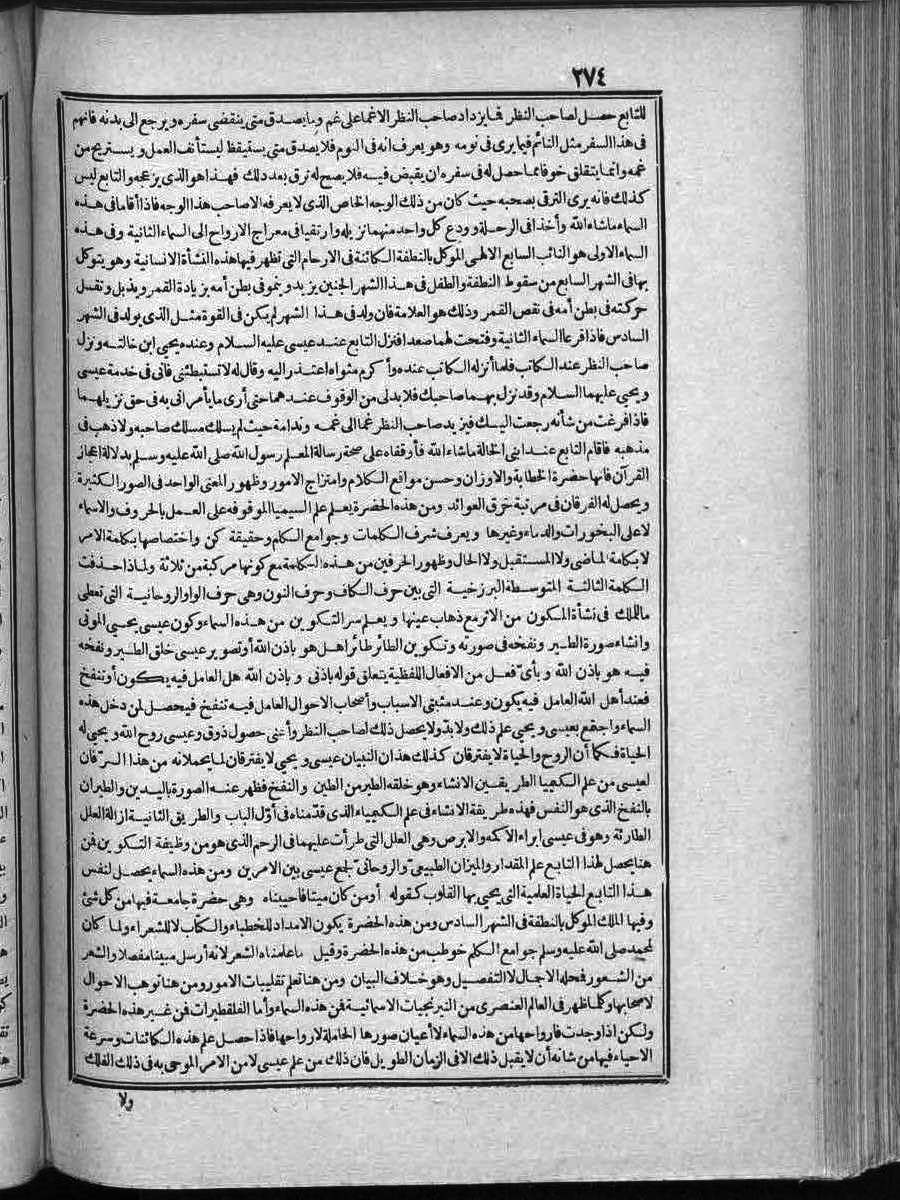 ٢٧٤
للتابع حصل لصاحب النظر فما يزداد صاحب النظر الا غما على غم وما يصدق متى ينقضى سفره ويرجع الى بدنه فانهم
فى هذا السفر مثل النائم فيما يرى فى نومه وهو يعرف انه فى النوم فلا يصدق متى يستيقظ ليستأنف العمل ويستريح من
غمه وانما يتقلق خوفا مما حصل له فى سفره ان يقبض فيه فلا يصح له ترق بعد ذلك فهذا هو الذى يزعجه والتابع ليس
كذلك فانه يرى الترقى يصحبه حيث كان من ذلك الوجه الخاص الذى لا يعرفه الا صاحب هذا الوجه فاذا أقاما فى هذه
السماء ماشاء الله وأخذا فى الرحلة وودع كل واحد منهما نزيله وارتقيا فى معراج الارواح الى السماء الثانية وفى هذه
السماء الاولى هو النائب السابع الالهى الموكل بالنطفة الكائنة فى الارحام التى تظهر فيها هذه النشأة الانسانية وهو يتوكل
بها فى الشهر السابع من سقوط النطفة والطفل فى هذا الشهر الجنين يزيد وينمو فى بطن أمه بزيادة القمر ويذبل وتقل
حركته فى بطن أمه فى نقص القمر وذلك هو العلامة فان ولد فى هذا الشهر لم يكن فى القوة مثل الذى يولد فى الشهر
السادس فاذا قرعا السماء الثانية وفتحت لهما صعدا فنزل التابع عند عيسى عليه السلام وعنده يحيى ابن خالته ونزل
صاحب النظر عند الكاتب فلما أنزله الكاتب عنده وأكرم مثواه اعتذر اليه وقال له لا تستبطئنى فانى فى خدمة عيسى
ويحيى عليهما السلام وقد نزل بهما صاحبك فلا بد لى من الوقوف عندهما حتى أرى ما يأمرانى به فى حق نزيلهما
فاذا فرغت من شأنه رجعت اليك فيزيد صاحب النظر غما الى غمه وندامة حيث لم يسلك مسلك صاحبه ولا ذهب فى
مذهبه فاقام التابع عند ابنى الخالة ماشاء الله فأوقفاه على صحة رسالة المعلم رسول الله صلى الله عليه وسلم بدلالة اعجاز
القرآن فانها حضرة الخطابة والاوزان وحسن مواقع الكلام وامتزاج الامور وظهور المعنى الواحد فى الصور الكثيرة
ويحصل له الفرقان فى مرتبة خرق العوائد ومن هذه الحضرة يعلم علم السيميا الموقوفة على العمل بالحروف والاسماء
لا على البخورات والدماء وغيرها ويعرف شرف الكلمات وجوامع الكلم وحقيقة كن واختصاصها بكلمة الامر
لا بكلمة الماضى ولا المستقبل ولا الحال وظهور الحرفين من هذه الكلمة مع كونها مركبة من ثلاثة ولماذا حذفت
الكلمة الثالثة المتوسطة البرزخية التى بين حرف الكاف وحرف النون وهى حرف الواو الروحانية التى تعطى
ما للملك فى نشأة المكون من الاثر مع ذهاب عينها ويعلم سر التكوين من هذه السماء وكون عيسى يحيى الموتى
وانشاء صورة الطير ونفخه فى صورته وتكوين الطائر طائرا هل هو باذن الله أو تصوير عيسى خلق الطير ونفخه
فيه هو باذن الله وبأى فعل من الافعال اللفظية يتعلق قوله باذنى وباذن الله هل العامل فيه يكون أو تنفخ
فعند أهل الله العامل فيه يكون وعند مثبتى الاسباب وأصحاب الاحوال العامل فيه تنفخ فيحصل لمن دخل هذه
السماء واجتمع بعيسى ويحيى علم ذلك ولا بد ولا يحصل ذلك لصاحب النظر وأعنى حصول ذوق وعيسى روح الله ويحيى له
الحياة فكما أن الروح والحياة لا يفترقان كذلك هذان النبيان عيسى ويحيى لا يفترقان لما يحملانه من هذا السر فان
لعيسى من علم الكيميا الطريقين الانشاء وهو خلقه الطير من الطين والنفخ فظهر عنه الصورة باليدين والطيران
بالنفخ الذى هو النفس فهذه طريقة الانشاء فى علم الكيمياء الذى قدمناه فى أول الباب والطريق الثانية ازالة العلل
الطارئة وهو فى عيسى ابراء الاكمه والابرص وهى العلل التى طرأت عليهما فى الرحم الذى هو من وظيفة التكوين فمن
هنا يحصل لهذا التابع علم المقدار والميزان الطبيعى والروحانى لجمع عيسى بين الامرين ومن هذه السماء يحصل لنفس
هذا التابع الحياة العلمية التى يحيى بها القلوب كقوله أومن كان ميتا فاحييناه وهى حضرة جامعة فيها من كل شئ
وفيها الملك الموكل بالنطفة فى الشهر السادس ومن هذه الحضرة يكون الامداد للخطباء والكتاب لا للشعراء ولما كان
لمحمد صلى الله عليه وسلم جوامع الكلم خوطب من هذه الحضرة وقيل ما علمناه الشعر لانه أرسل مبينا مفصلا والشعر
من الشعور فمحله الاجمال لا التفصيل وهو خلاف البيان ومن هنا تعلم تقليبات الامور ومن هنا توهب الاحوال
لاصحابها وكلما ظهر فى العالم العنصرى من النيرنجيات الاسمائية فمن هذه السماء وأما الفلقطيرات فمن غير هذه الحضرة
ولكن اذا وجدت فارواحها من هذه السماء لا أعيان صورها الحاملة لارواحها فاذا حصل علم هذه الكائنات وسرعة
الاحياء فيها من شأنه أن لا يقبل ذلك الا فى الزمان الطويل فان ذلك من علم عيسى لا من الامر الموحى به فى ذلك الفلك
ولا